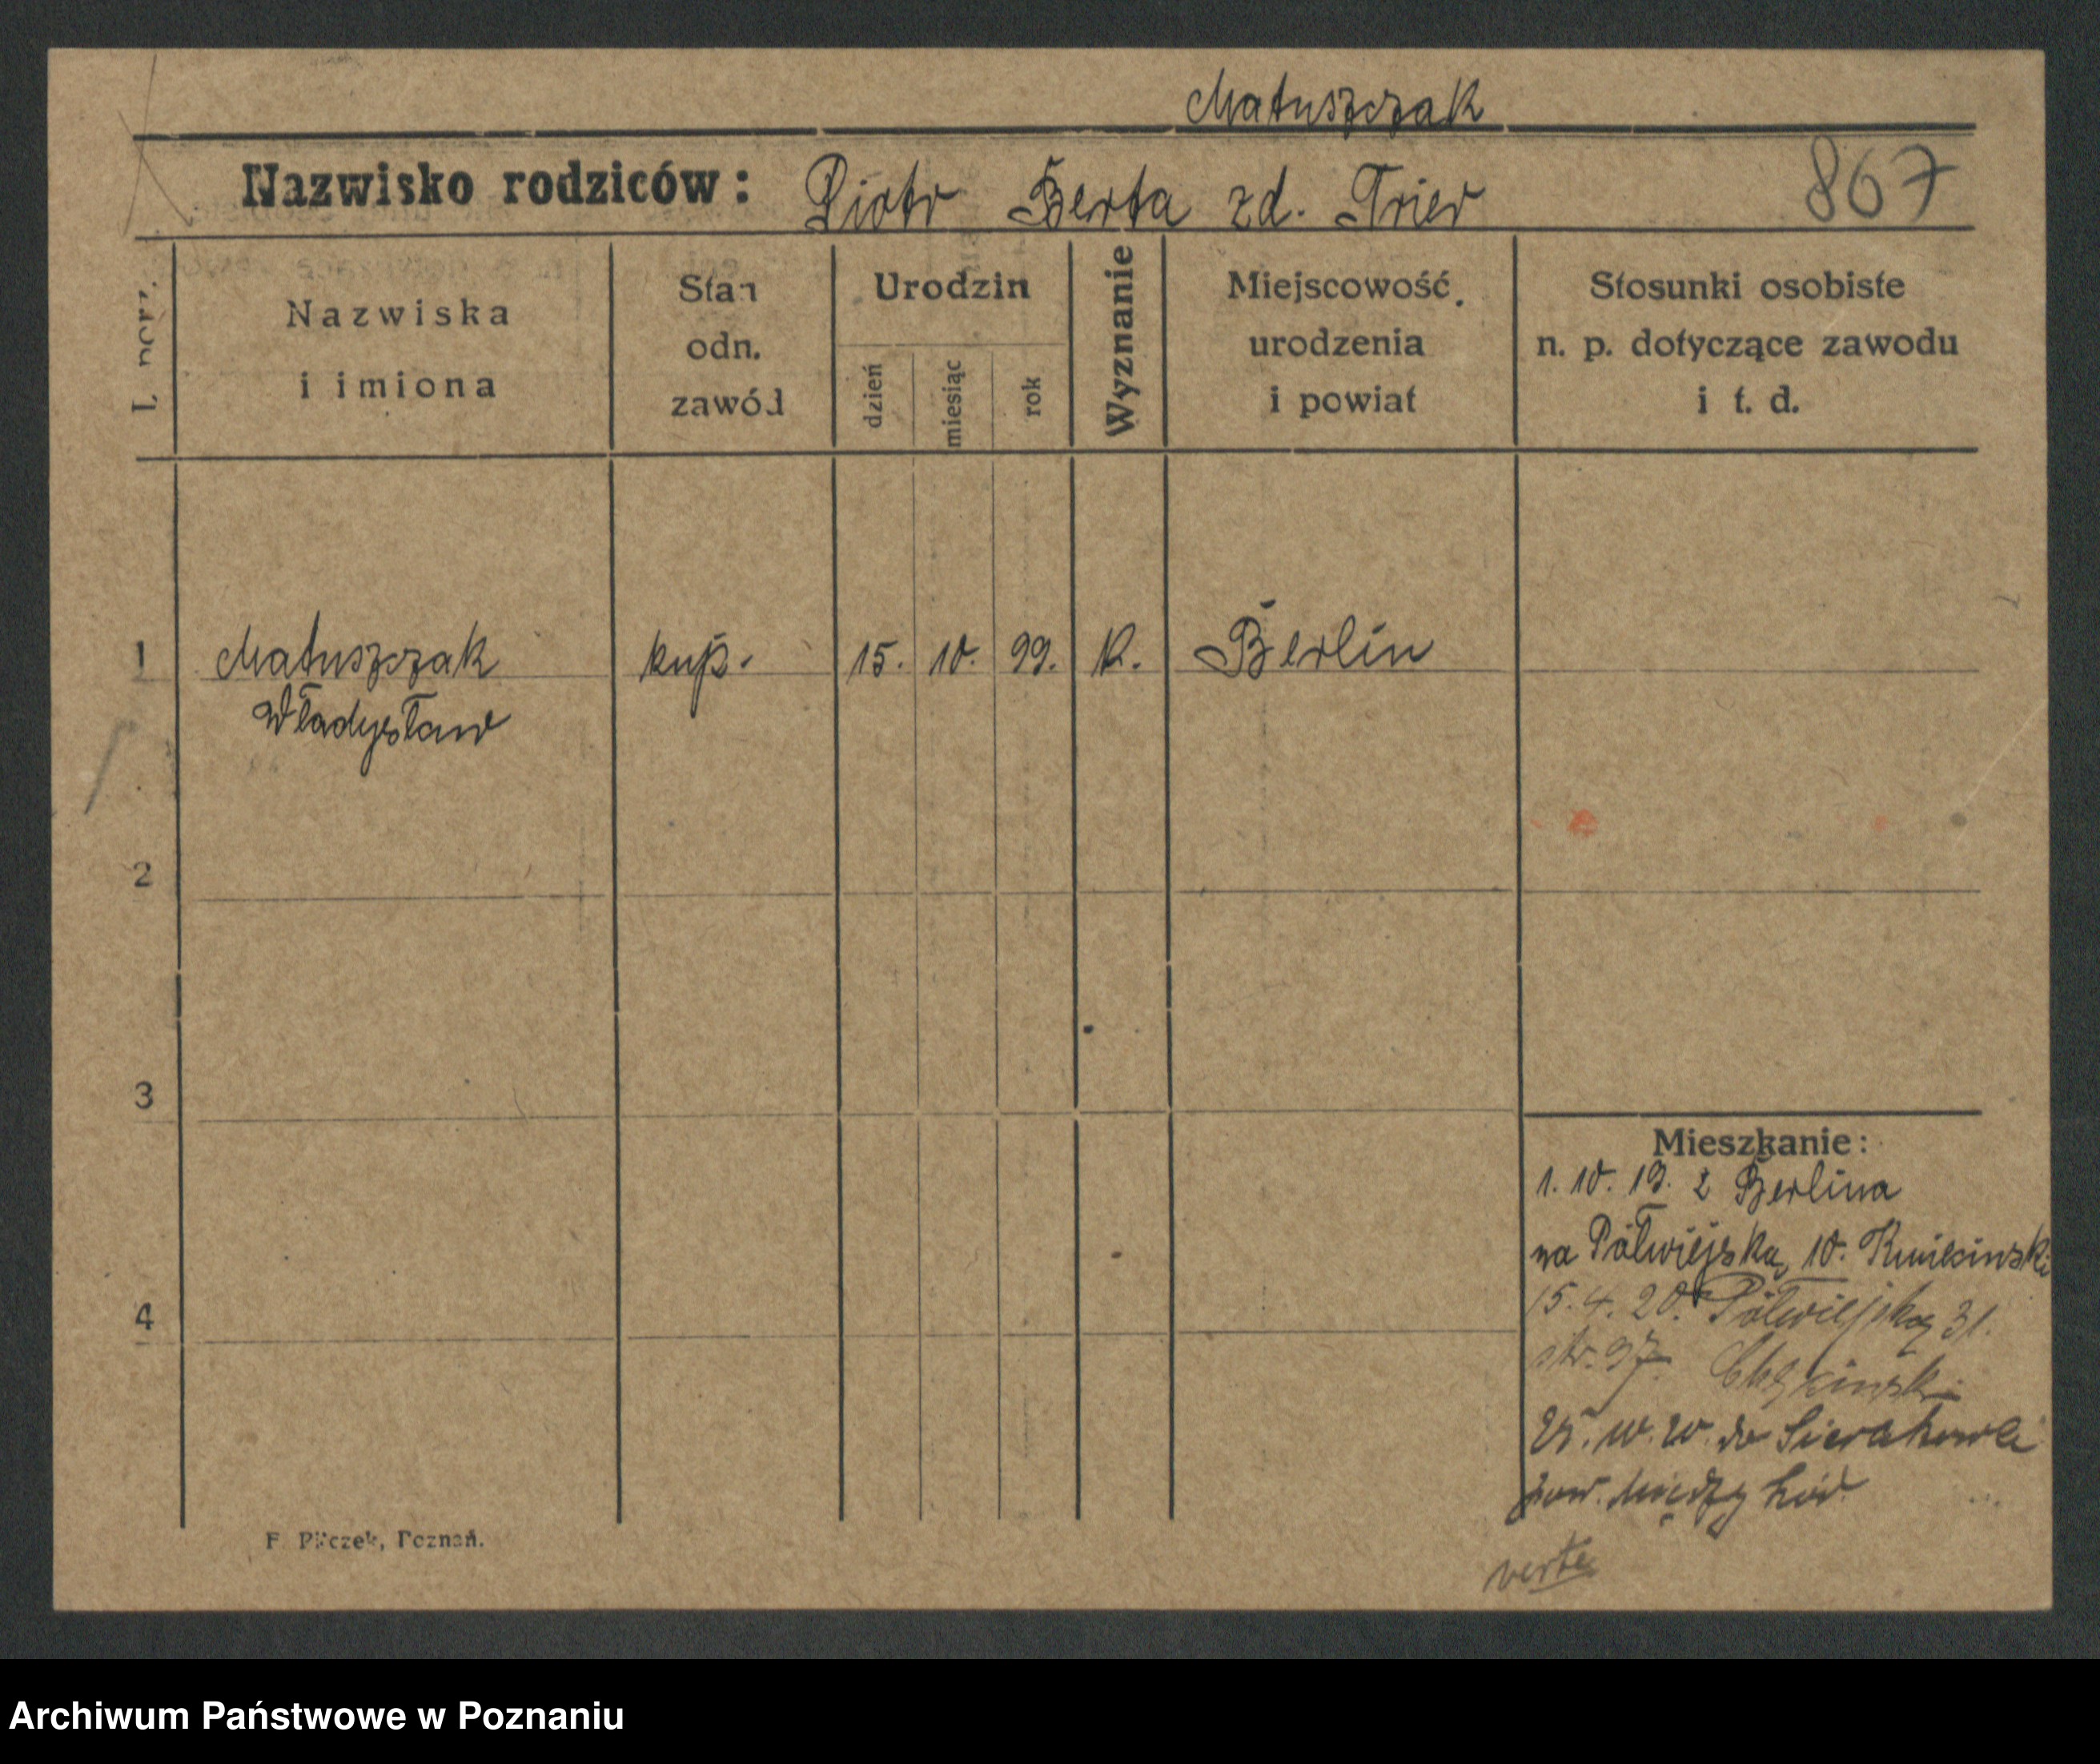 Matuszczak
Nazwisko rodziców: Piotr Berta zd. Trier 867
L. porz.
Nazwiska
i imiona
Stan
odn.
zawód
Urodzin
dzień
miesiąc
rok
Wyznanie
Miejscowość
urodzenia
i powiat
Stosunki osobiste
n. p. dotyczące zawodu
i t. d.
1 Matuszczak kup. 15. 10. 99. k. Berlin
Władysław
2
3
4
Mieszkanie:
1. 10. 19. z Berlina
na Półwiejską 10.
15. 4. 20. Półwiejską 31.
str. 97.
25. 10. 20. do Sierakowa
pow. Międzychód
verte
F. Pilczek, Poznań.
Archiwum Państwowe w Poznaniu